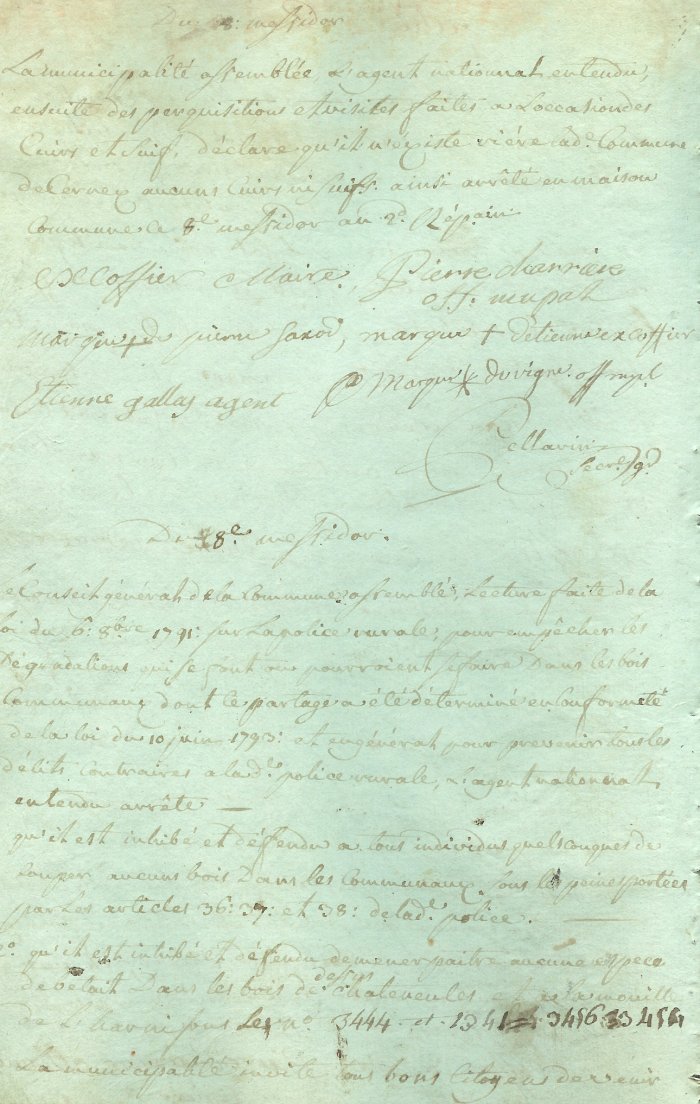 Du 8: messidor
La municipalité assemblée, L'agent nationnal entendu,
ensuite des perquisitions et visites faites a Loccasion des
Cuirs et Suif, déclare qu'il n'existe riére lad.e Commune
de Cernex aucuns Cuirs ni Suifs. ainsi arrêté en maison
Commune ce 8.e messidor an 2.d Répain
excoffier Maire, Pierre charriere
off. mupal
marque + de pierre saxod, marque + detienne excoffier
Etienne gallay agent Marque + duvigne off mpl
Pellarin
Secre.
Du 8.e messidor.
le Conseil général de la Commune assemblé, Lecture faite de la
loi du 6: 8bre 1791: sur La police rurale, pour empêcher les
Dégradations qui se sont ou pourroient se faire Dans les bois
Communaux dont le partage a été déterminé en Conformeté
de la loi du 10 juin 1793: et en général pour prevenir tous les
délits Contraires a lad.e police rurale, L'agent nationnal
entendu arrête —
qu'il est inhibé et déffendu a tous individus quelsconques de
Couper aucuns bois Dans les Communaux sous les peines portées
par Les articles 36: 37: et 38: de lad.e police. —
2.o qu'il est inhibé et déffendu de mener paitre aucune espece
de betail Dans les bois des et de la mouille
de sous Les n.o 3444 et 1341 3456 33454
La municipalité invite tous bons Citoyens de venir